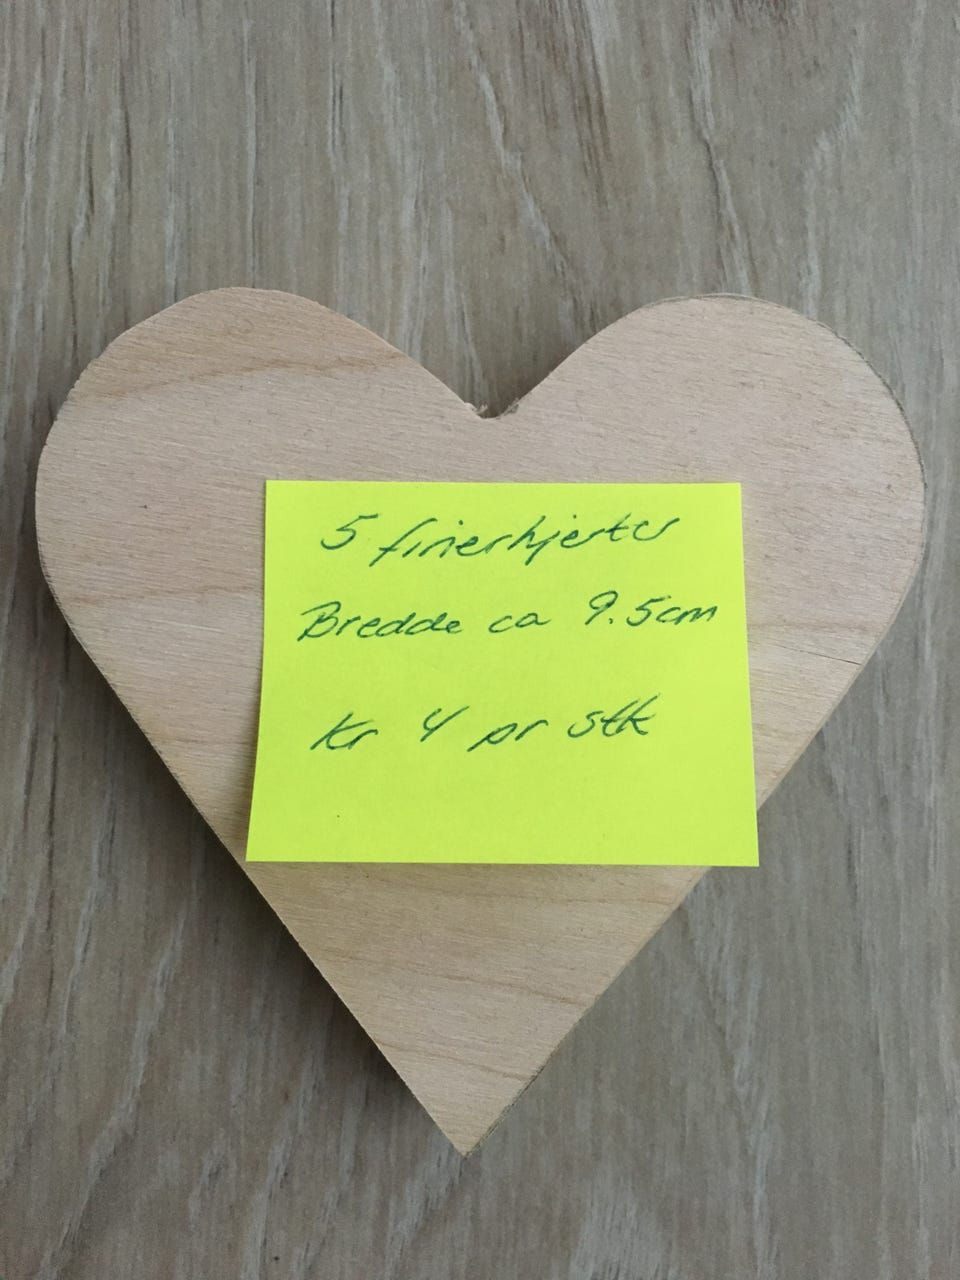 5 finerhjerter
Bredde ca 9.5cm
Kr 4 pr stk